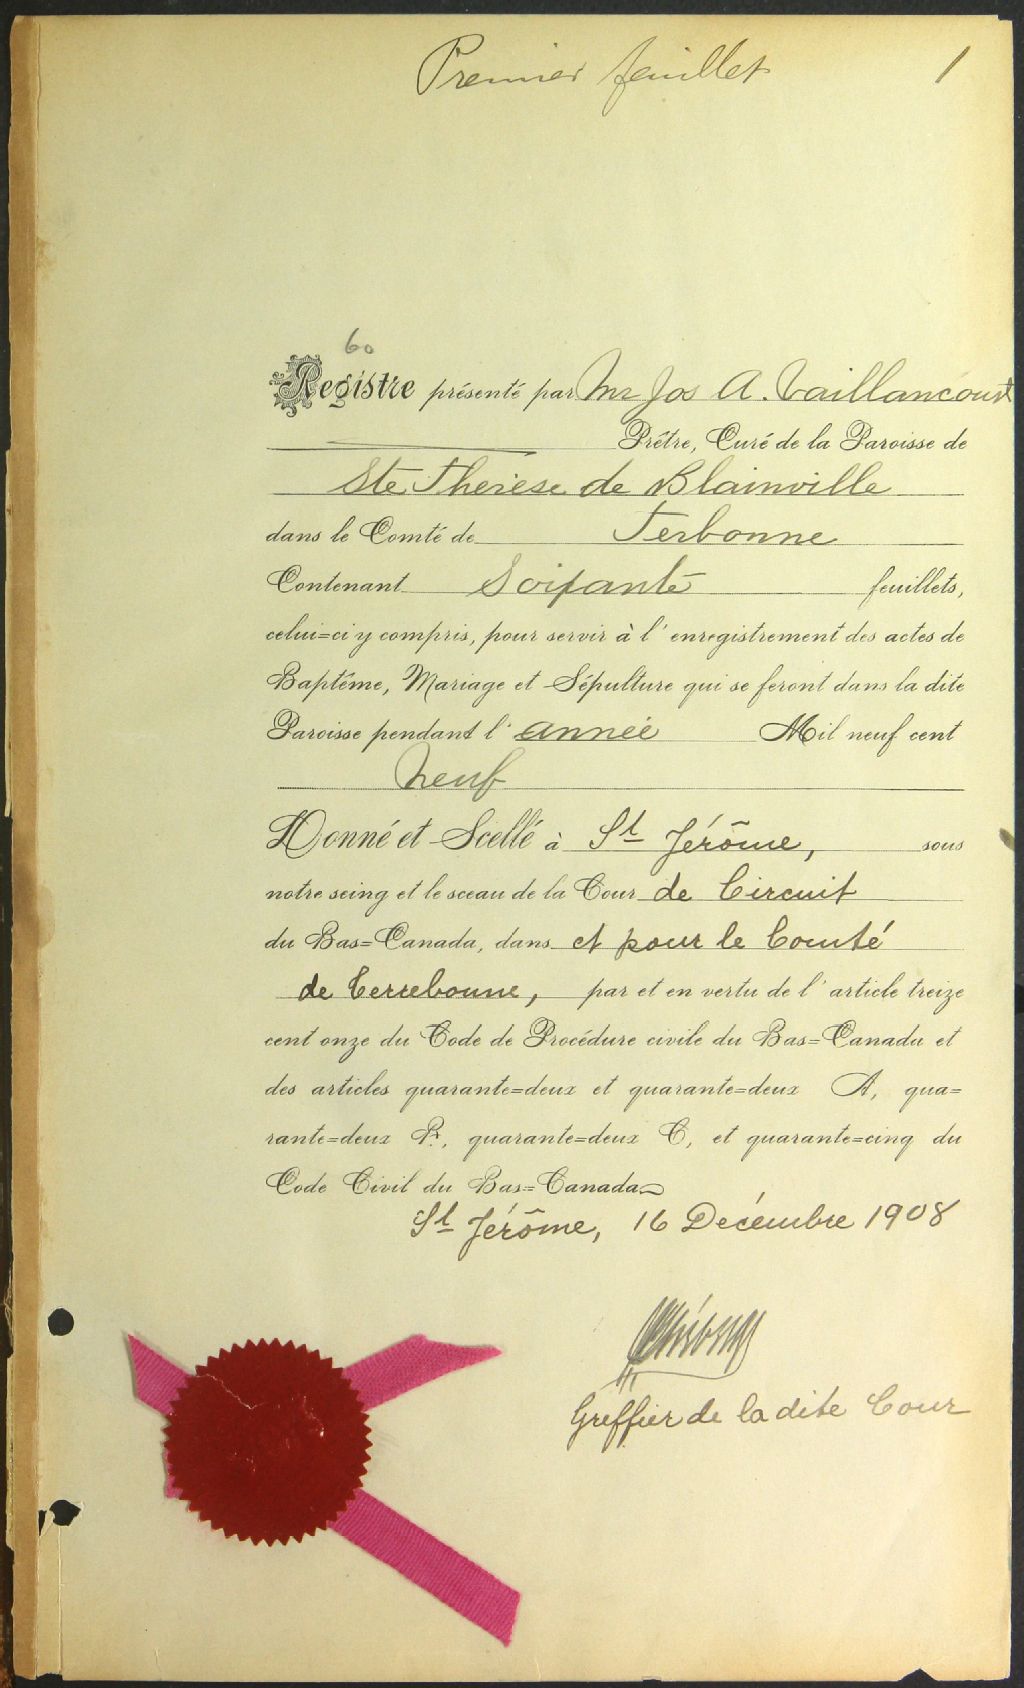 Premier feuillet 1
60
Registre présenté par Mr Jos A. Vaillancourt
Prêtre, Curé de la Paroisse de
Ste Therese de Blainville
dans le Comté de Terbonne
Contenant Soixante feuillets,
celui=ci y compris, pour servir à l'enregistrement des actes de
Baptême, Mariage et Sépulture qui se feront dans la dite
Paroisse pendant l'année Mil neuf cent
Neuf
Donné et Scellé à St Jérôme, sous
notre seing et le sceau de la Cour de Circuit
du Bas=Canada, dans et pour le Comté
de Terrebonne, par et en vertu de l'article treize
cent onze du Code de Procédure civile du Bas=Canada et
des articles quarante=deux et quarante=deux A, qua=
rante=deux B, quarante=deux C, et quarante=cinq du
Code Civil du Bas=Canada
St Jérôme, 16 Decémbre 1908
Greffier de la dite Cour